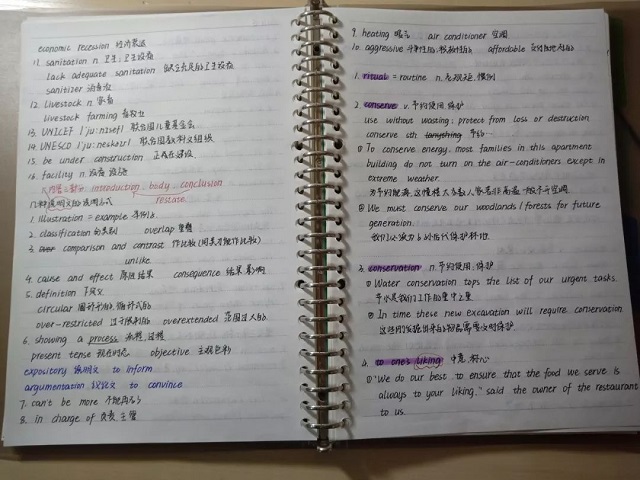 economic recession 经济衰退
11. sanitation n. 卫生;卫生设备
lack adequate sanitation 缺乏充足的卫生设备
sanitizer 消毒液
12. livestock n. 家畜
livestock farming 畜牧业
13. UNICEF 联合国儿童基金会
14. UNESCO 联合国教科文组织
15. be under construction 正在建设
16. facility n. 设备 设施
introduction、body、conclusion
restate
说明文的说明方式
1. illustration = example 举例
2. classification 分类别 overlap 重叠
3. comparison and contrast 作比较(同类才能作比较)
unlike
4. cause and effect 原因 结果 consequence 结果 影响
5. definition 下定义
circular
over-restricted overextended 范围过大的
6. showing a process 流程 过程
present tense 现在时态 objective
expository 说明文 to inform
argumentation 议论文 to convince
7. can't be more 不能再多了
8. in charge of 负责 主管
9. heating 暖气 air conditioner 空调
10. aggressive affordable
1. ritual = routine n.
2. conserve v. 节约使用 保护
use without wasting; protect from loss or destruction
conserve sth 节约…
① To conserve energy, most families in this apartment
building do not turn on the air-conditioners except in
extreme weather.
② We must conserve our woodlands / forests for future
generation.
我们必须为了后代保护林地.
3. conservation n. 节约使用, 保护
① Water conservation tops the list of our urgent tasks.
节水是我们工作的重中之重
② In time these new excavation will require conservation.
4. to one's liking 中意 称心
① "We do our best to ensure that the food we serve is
always to your liking," said the owner of the restaurant
to us.